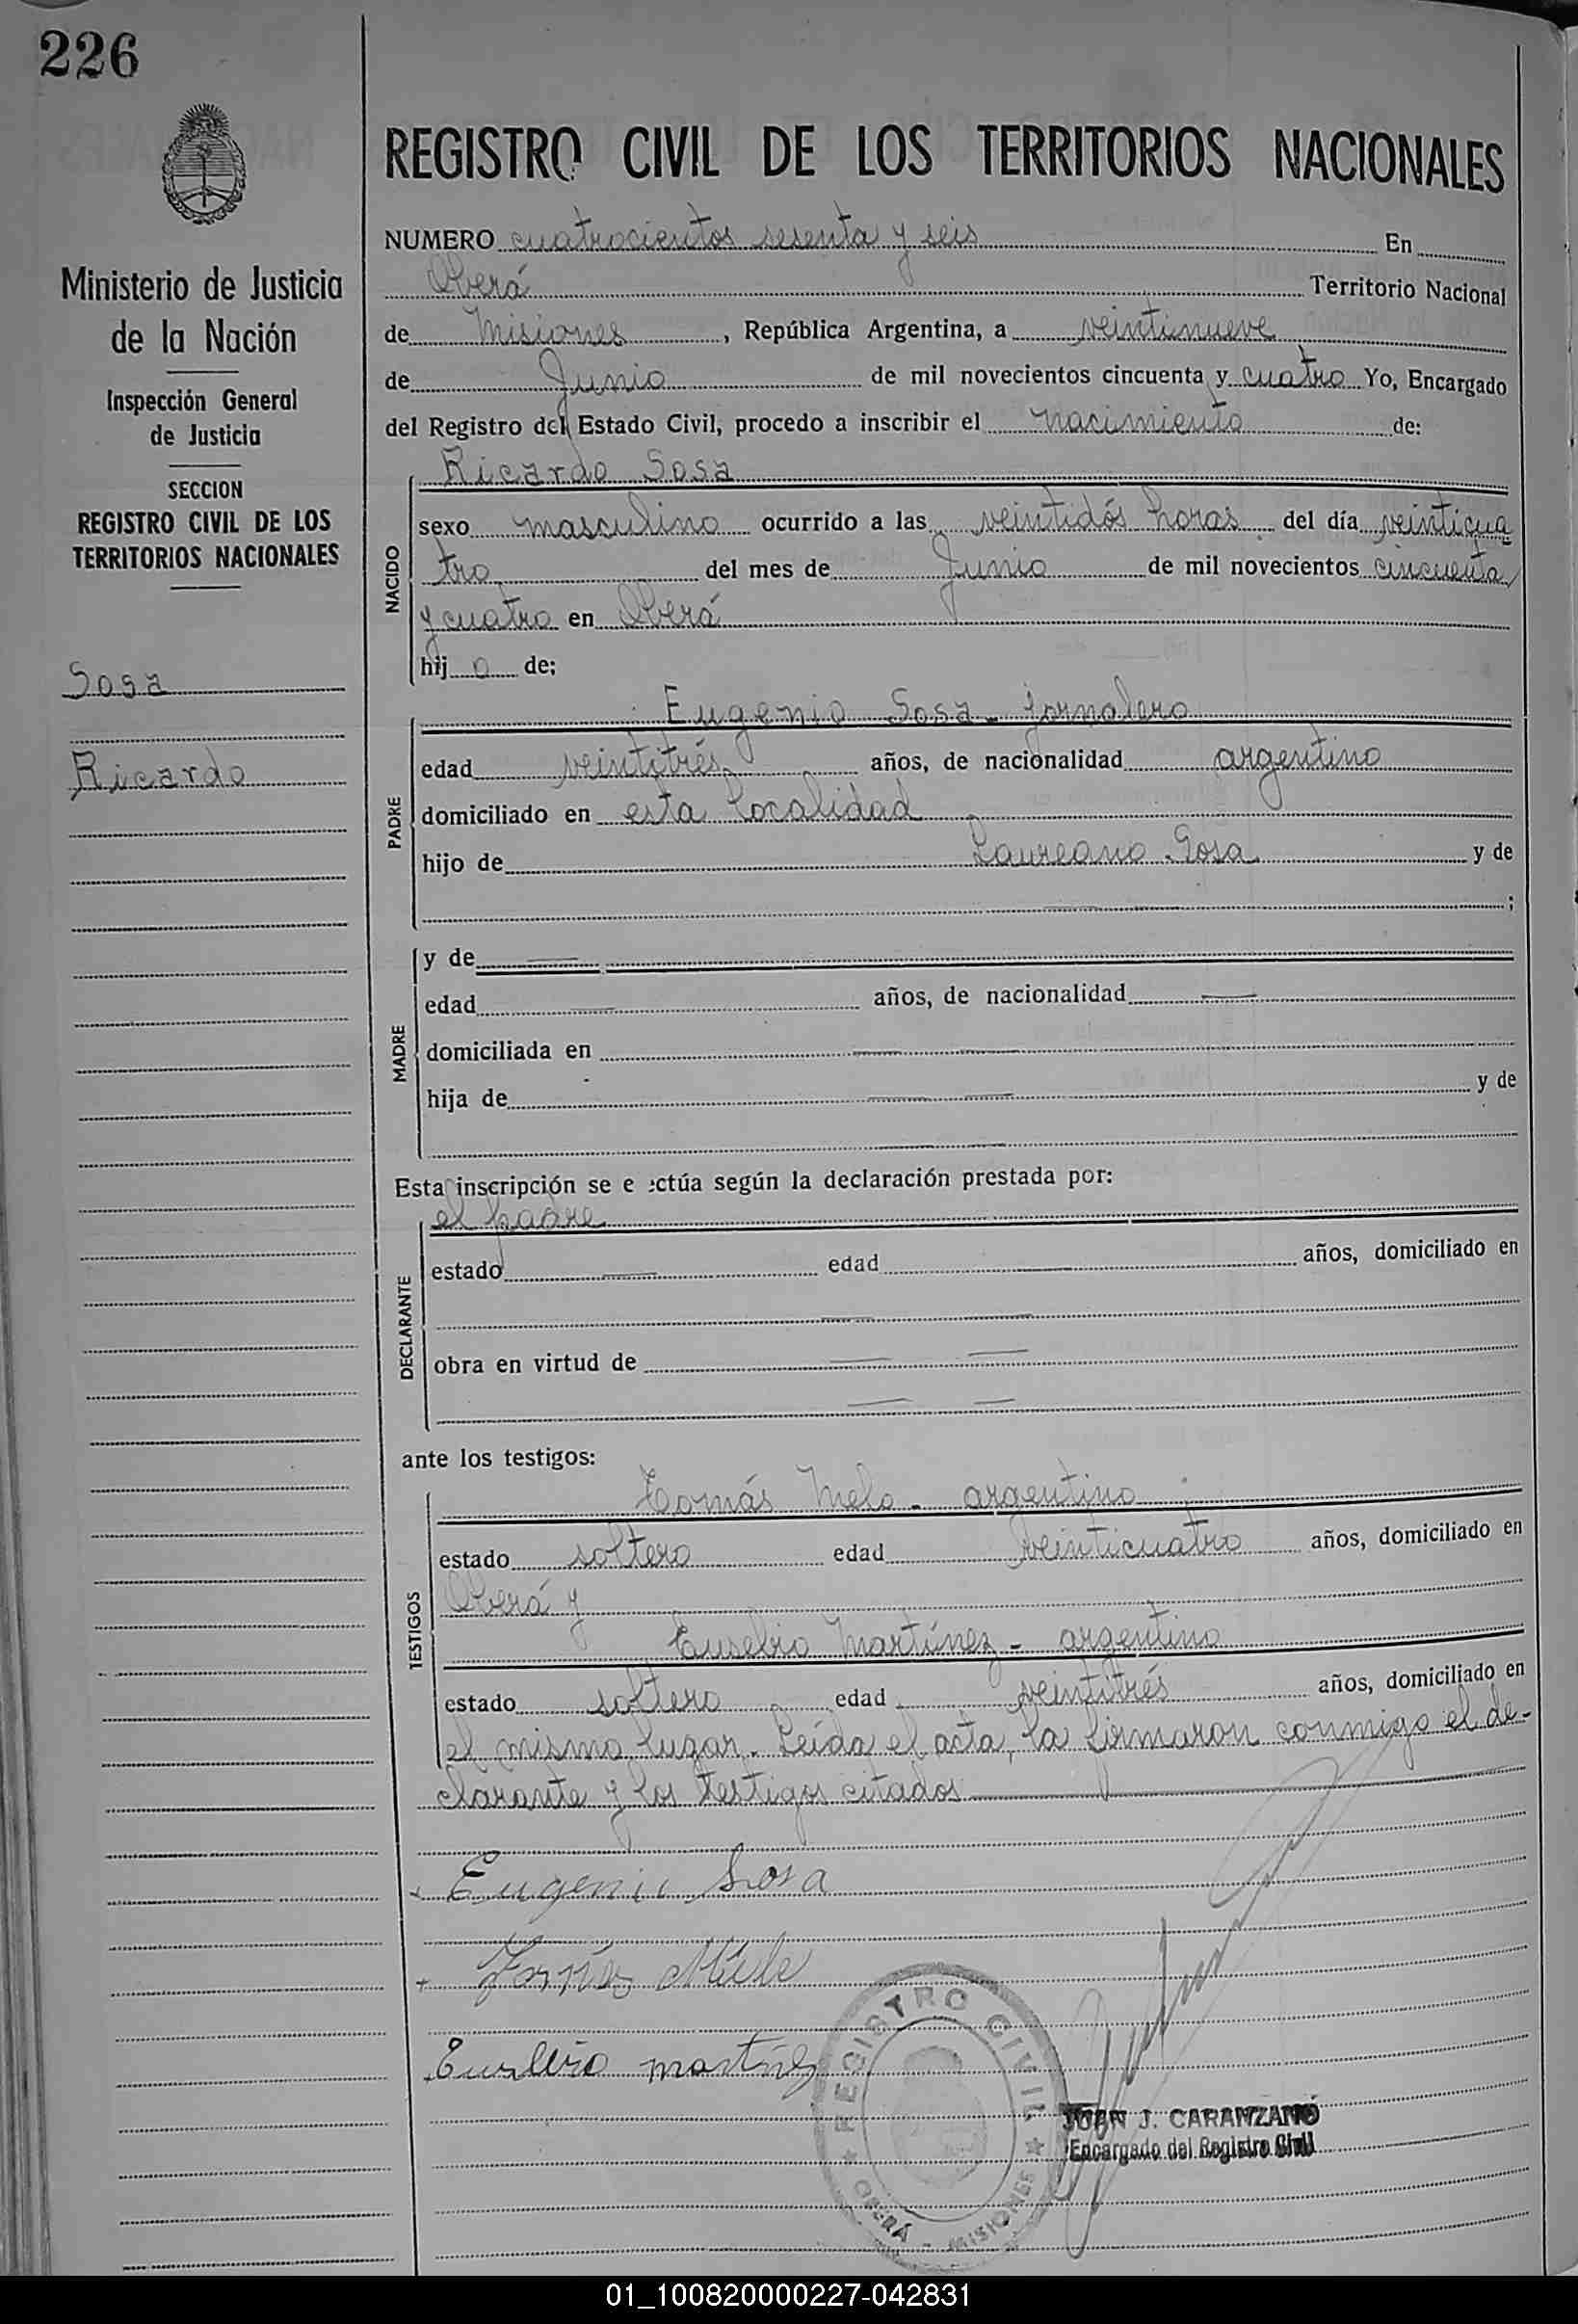 226
Ministerio de Justicia
de la Nación
Inspección General
de Justicia
SECCION
REGISTRO CIVIL DE LOS
TERRITORIOS NACIONALES
Sosa
Ricardo
REGISTRO CIVIL DE LOS TERRITORIOS NACIONALES
NUMERO cuatrocientos sesenta y seis En
Oberá Territorio Nacional
de Misiones, República Argentina, a veintinueve
de Junio de mil novecientos cincuenta y cuatro Yo, Encargado
del Registro del Estado Civil, procedo a inscribir el nacimiento de:
NACIDO
Ricardo Sosa
sexo masculino ocurrido a las veintidós horas del día veinticua
tro del mes de Junio de mil novecientos cincuenta
y cuatro en Oberá
hij o de;
PADRE
Eugenio Sosa - jornalero
edad veintitrés años, de nacionalidad argentino
domiciliado en esta localidad
hijo de Laureano Sosa y de
;
MADRE
y de
edad años, de nacionalidad
domiciliada en
hija de y de
Esta inscripción se e ectúa según la declaración prestada por:
DECLARANTE
el padre
estado edad años, domiciliado en
obra en virtud de
ante los testigos:
TESTIGOS
Tomás Melo - argentino
estado soltero edad veinticuatro años, domiciliado en
Oberá y
Eusebio Martínez - argentino
estado soltero edad veintitrés años, domiciliado en
el mismo lugar. Leída el acta, la firmaron conmigo el de-
clarante y los testigos citados
Eugenio Sosa
Eusebio Martínez
REGISTRO CIVIL
OBERÁ - MISIONES
JUAN J. CARANZANO
Encargado del Registro Civil
01_100820000227-042831